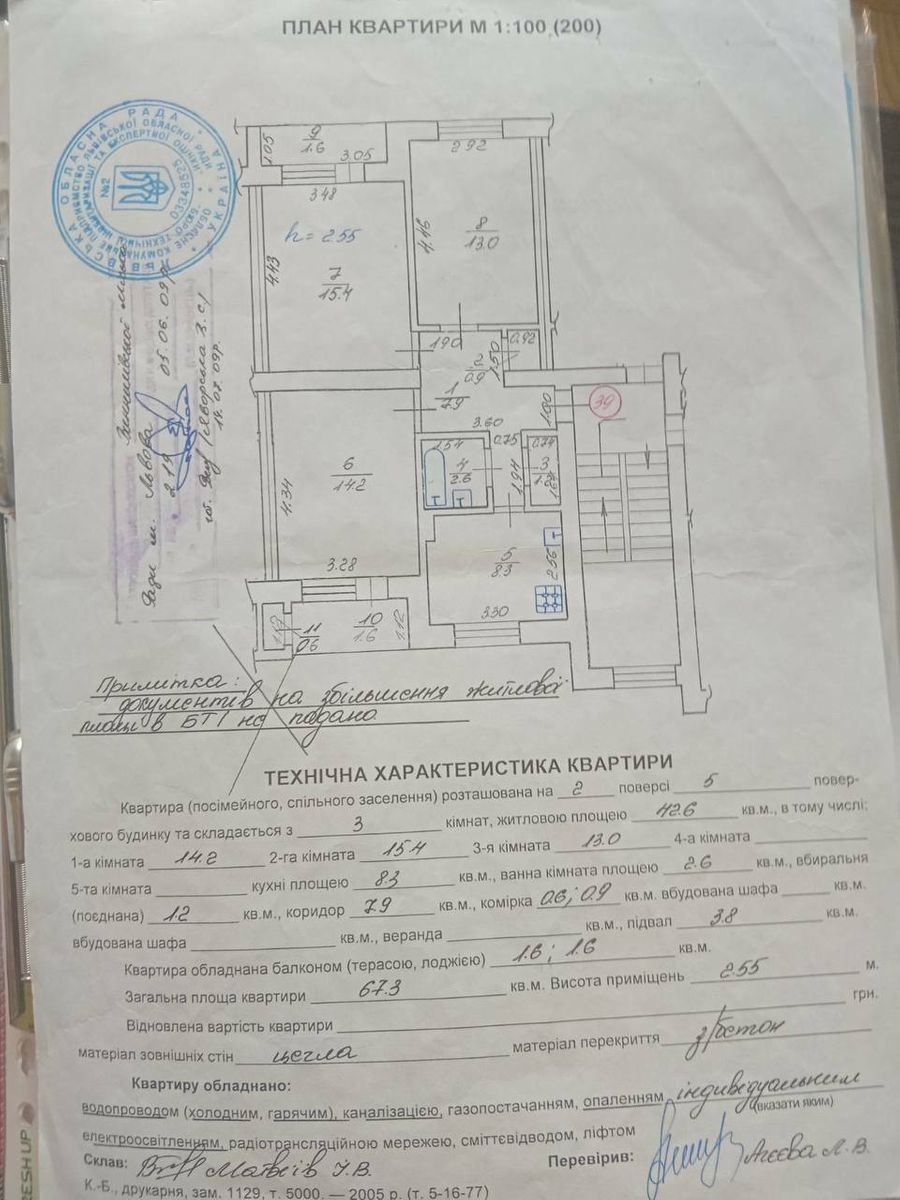 ПЛАН КВАРТИРИ М 1:100 (200)
ЛЬВІВСЬКА ОБЛАСНА РАДА * УКРАЇНА
03348525
№2
1.05
9
1.6
3.05
2.92
3.48
h = 2.55
4.46
8
13.0
4.43
7
15.4
190
2
0.9
1.50
0.92
1
7.9
3.60
1.00
39
1.54
4
2.6
0.75
1.94
0.74
3
6
14.2
4.34
3.28
5
8.3
2.56
3.30
11
0.6
10
1.6
1.12
ради м. Львова
219
05.06.09р.
14.07.09р.
Примітка:
документів на збільшення житлової
площі в БТІ не подано
ТЕХНІЧНА ХАРАКТЕРИСТИКА КВАРТИРИ
Квартира (посімейного, спільного заселення) розташована на 2 поверсі 5 повер-
хового будинку та складається з 3 кімнат, житловою площею 42.6 кв.м., в тому числі:
1-а кімната 14.2 2-га кімната 15.4 3-я кімната 13.0 4-а кімната
5-та кімната кухні площею 8.3 кв.м., ванна кімната площею 2.6 кв.м., вбиральня
(поєднана) 1.2 кв.м., коридор 7.9 кв.м., комірка 0.6; 0.9 кв.м. вбудована шафа кв.м.
вбудована шафа кв.м., веранда кв.м., підвал 3.8 кв.м.
Квартира обладнана балконом (терасою, лоджією) 1.6; 1.6 кв.м.
Загальна площа квартири 67.3 кв.м. Висота приміщень 2.55 м.
Відновлена вартість квартири грн.
матеріал зовнішніх стін цегла матеріал перекриття з/бетон
Квартиру обладнано:
водопроводом (холодним, гарячим), каналізацією, газопостачанням, опаленням індивідуальним
(вказати яким)
електроосвітленням, радіотрансляційною мережею, сміттєвідводом, ліфтом
Склав: Матвіїв І.В. Перевірив: Агеєва Л.В.
К.-Б., друкарня, зам. 1129, т. 5000. — 2005 р. (т. 5-16-77)
FRESH UP